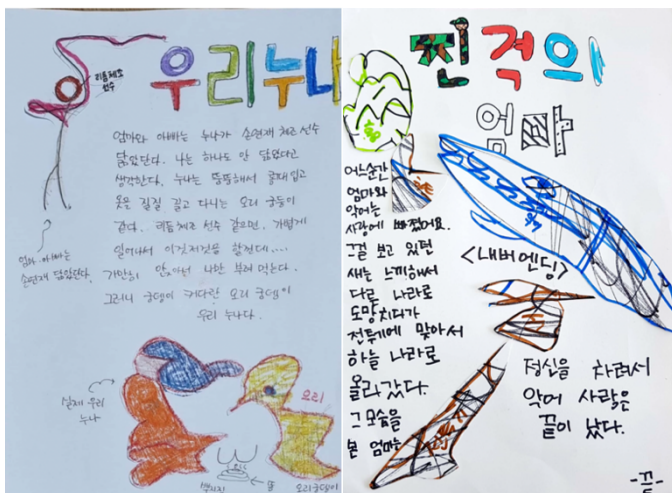 우리누나
리듬체조
선수
엄마와 아빠는 누나가 손연재 체조 선수
닮았단다. 나는 하나도 안 닮았다고
생각한다. 누나는 뚱뚱해서 곰패입고
옷은 질질 끌고 다니는 오리 궁둥이
같다. 리듬체조 선수 같으면, 가볍게
일어나서 이것저것을 할텐데....
가만히 앉아서 나만 부려 먹는다.
그러니 궁뎅이 커다란 오리 궁뎅이
우리 누나다.
엄마 아빠는
손연재 닮았단다.
실제 우리
누나
오리
똥
오리궁뎅이
찐격의
엄마
어느순간
엄마와
악어는
사랑에 빠졌어요.
그걸 보고 있던
새는 느끼해서
다른 나라로
도망치다가
전투기에 맞아서
하늘 나라로
올라갔다.
그 모습을
본 엄마는
<새버엔딩>
정신을 차려서
악어 사랑은
끝이 났다.
-끝-